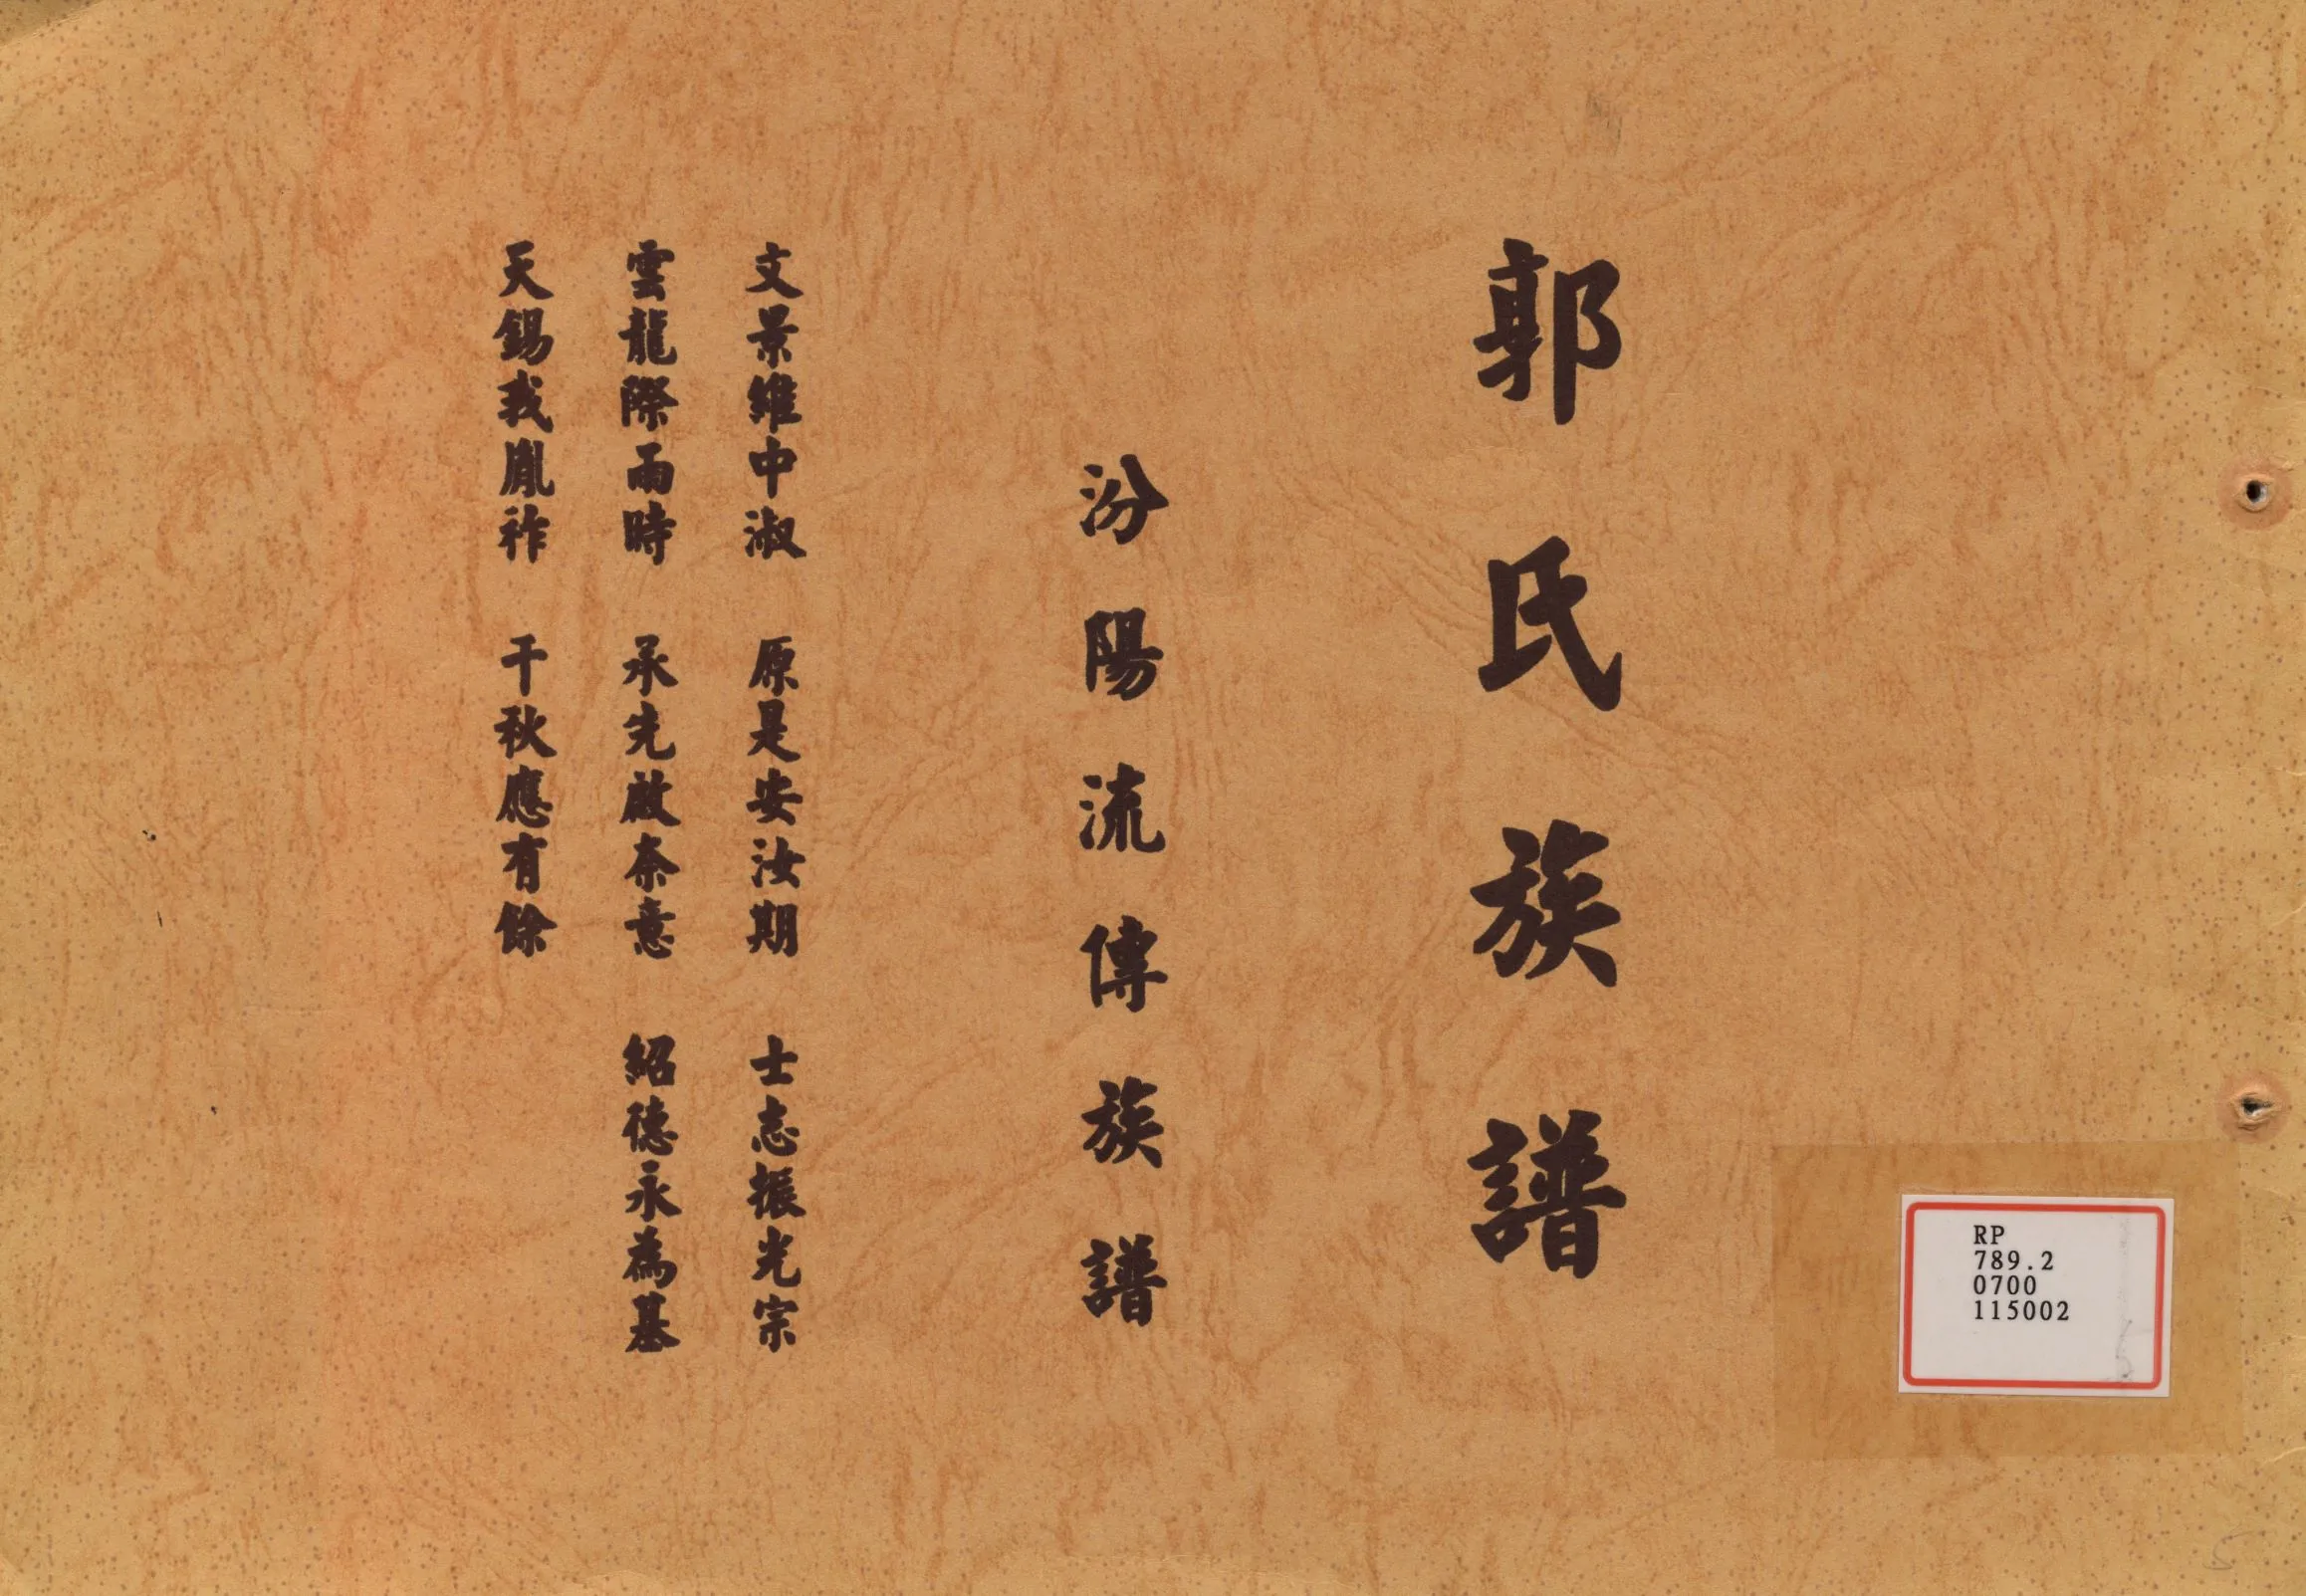 郭氏族譜
汾陽流傳族譜
文景維中淑　原是安汝期　士志振光宗
雲龍際雨時　承先啟奈意　紹德永為基
天錫我胤祚　千秋應有餘
RP
789.2
0700
115002